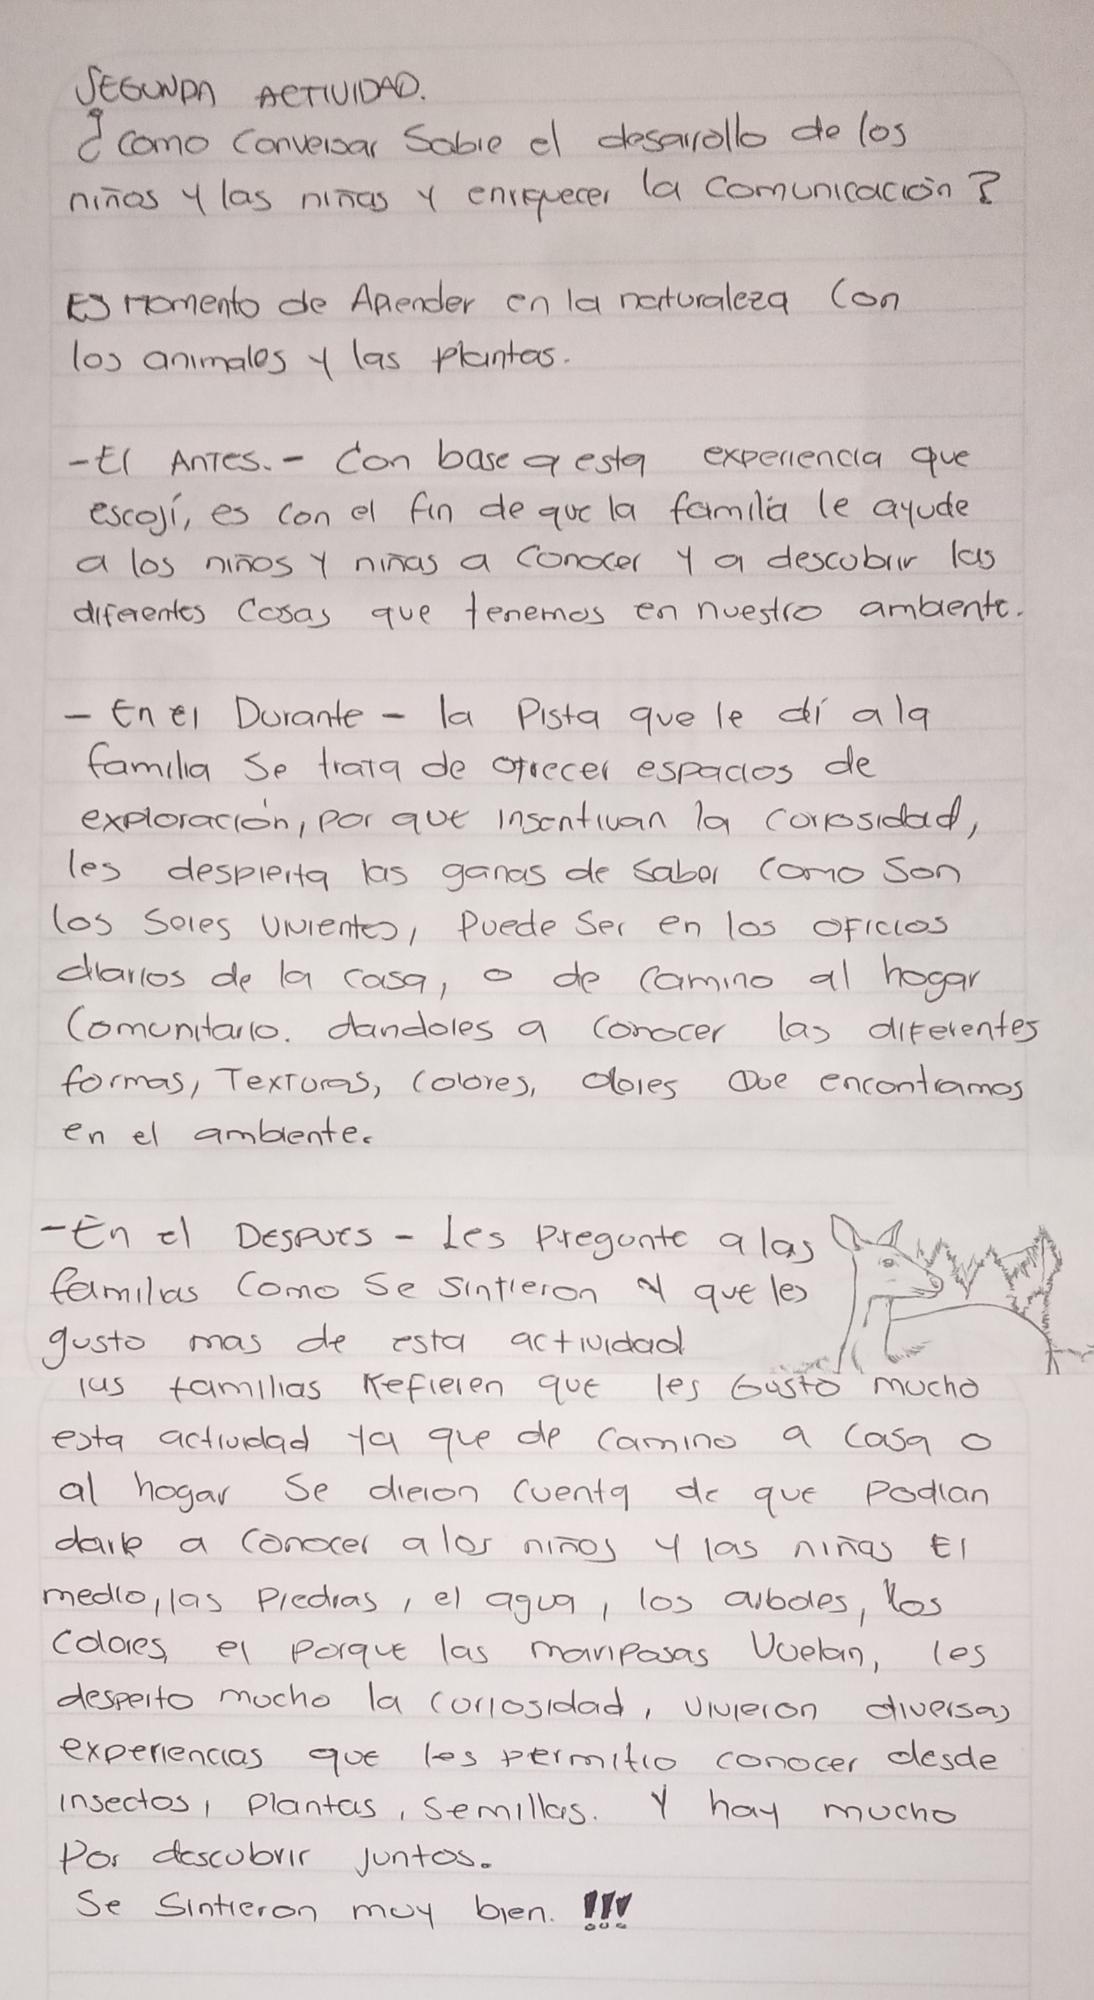 SEGUNDA ACTIVIDAD.
¿como conversar Sobre el desarrollo de los
niños y las niñas y enriquecer la comunicación?
Es Momento de Aprender en la naturaleza con
los animales y las plantas.
-El ANTES.- Con base a esta experiencia que
escojí, es con el fin de que la familia le ayude
a los niños y niñas a conocer y a descobrir las
diferentes cosas que tenemos en nuestro ambiente.
- En el Durante - la Pista que le dí a la
familia se trata de ofrecer espacios de
exploración, por que insentivan la coriosidad,
les despierta las ganas de saber como son
los seres vivientes, Puede ser en los oficios
diarios de la casa, o de camino al hogar
Comunitario. dandoles a conocer las diferentes
formas, Texturas, colores, olores Que encontramos
en el ambiente.
-En el Despues - Les Pregunte a las
familias como se sintieron y que les
gusto mas de esta actividad
las familias Refieren que les Gusto mucho
esta actividad ya que de camino a casa o
al hogar se dieron cuenta de que podian
darle a conocer a los niños y las niñas El
medio, las Piedras, el agua, los arboles, los
colores, el porque las mariposas Vuelan, les
desperto mucho la coriosidad, vivieron diversas
experiencias que les permitio conocer desde
insectos, plantas, semillas. Y hay mucho
Por descobrir juntos.
Se Sintieron muy bien. !!!